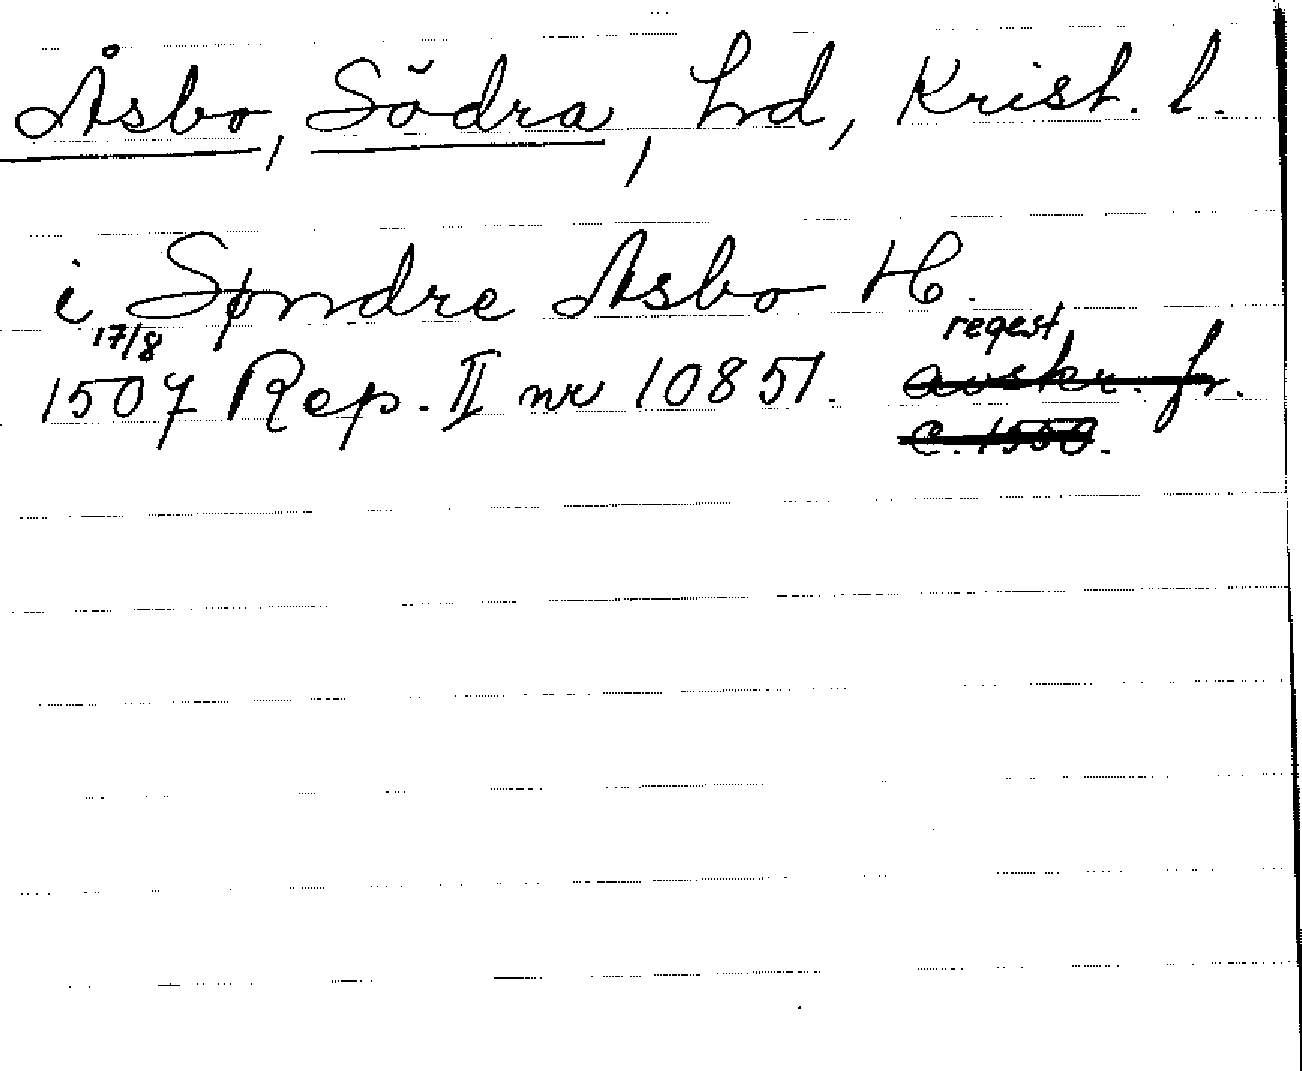 Åsbo, Södra, hd, Krist. l.
i Søndre Asbo H.
17/8 regest
1507 Rep. II nr 10851. avskr. fr.
c. 1550.